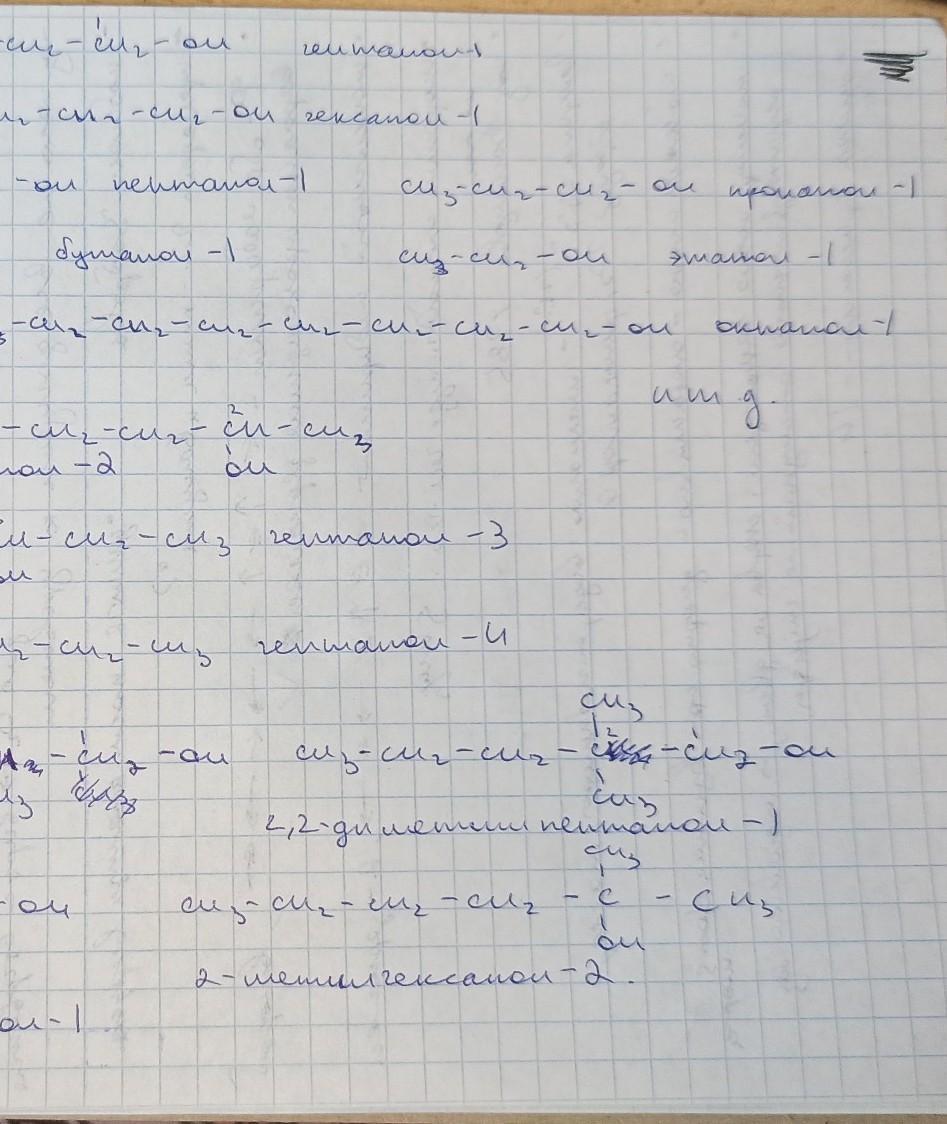 CH₂ - CH₂ - OH гептанол-1
H₂ - CH₂ - CH₂ - OH гексанол-1
- OH пентанол-1 CH₃ - CH₂ - CH₂ - OH пропанол-1
бутанол-1 CH₃ - CH₂ - OH этанол-1
₃ - CH₂ - CH₂ - CH₂ - CH₂ - CH₂ - CH₂ - CH₂ - OH октанол-1
и т д.
2
- CH₂ - CH₂ - CH - CH₃
нол-2 OH
CH - CH₂ - CH₃ гептанол-3
OH
H₂ - CH₂ - CH₃ гептанол-4
CH₃
1 2 1
- CH₂ - OH CH₃ - CH₂ - CH₂ - C - CH₂ - OH
H₃ CH₃
2,2-диметилпентанол-1
CH₃
- OH CH₃ - CH₂ - CH₂ - CH₂ - C - CH₃
OH
2-метилгексанол-2.
ол-1